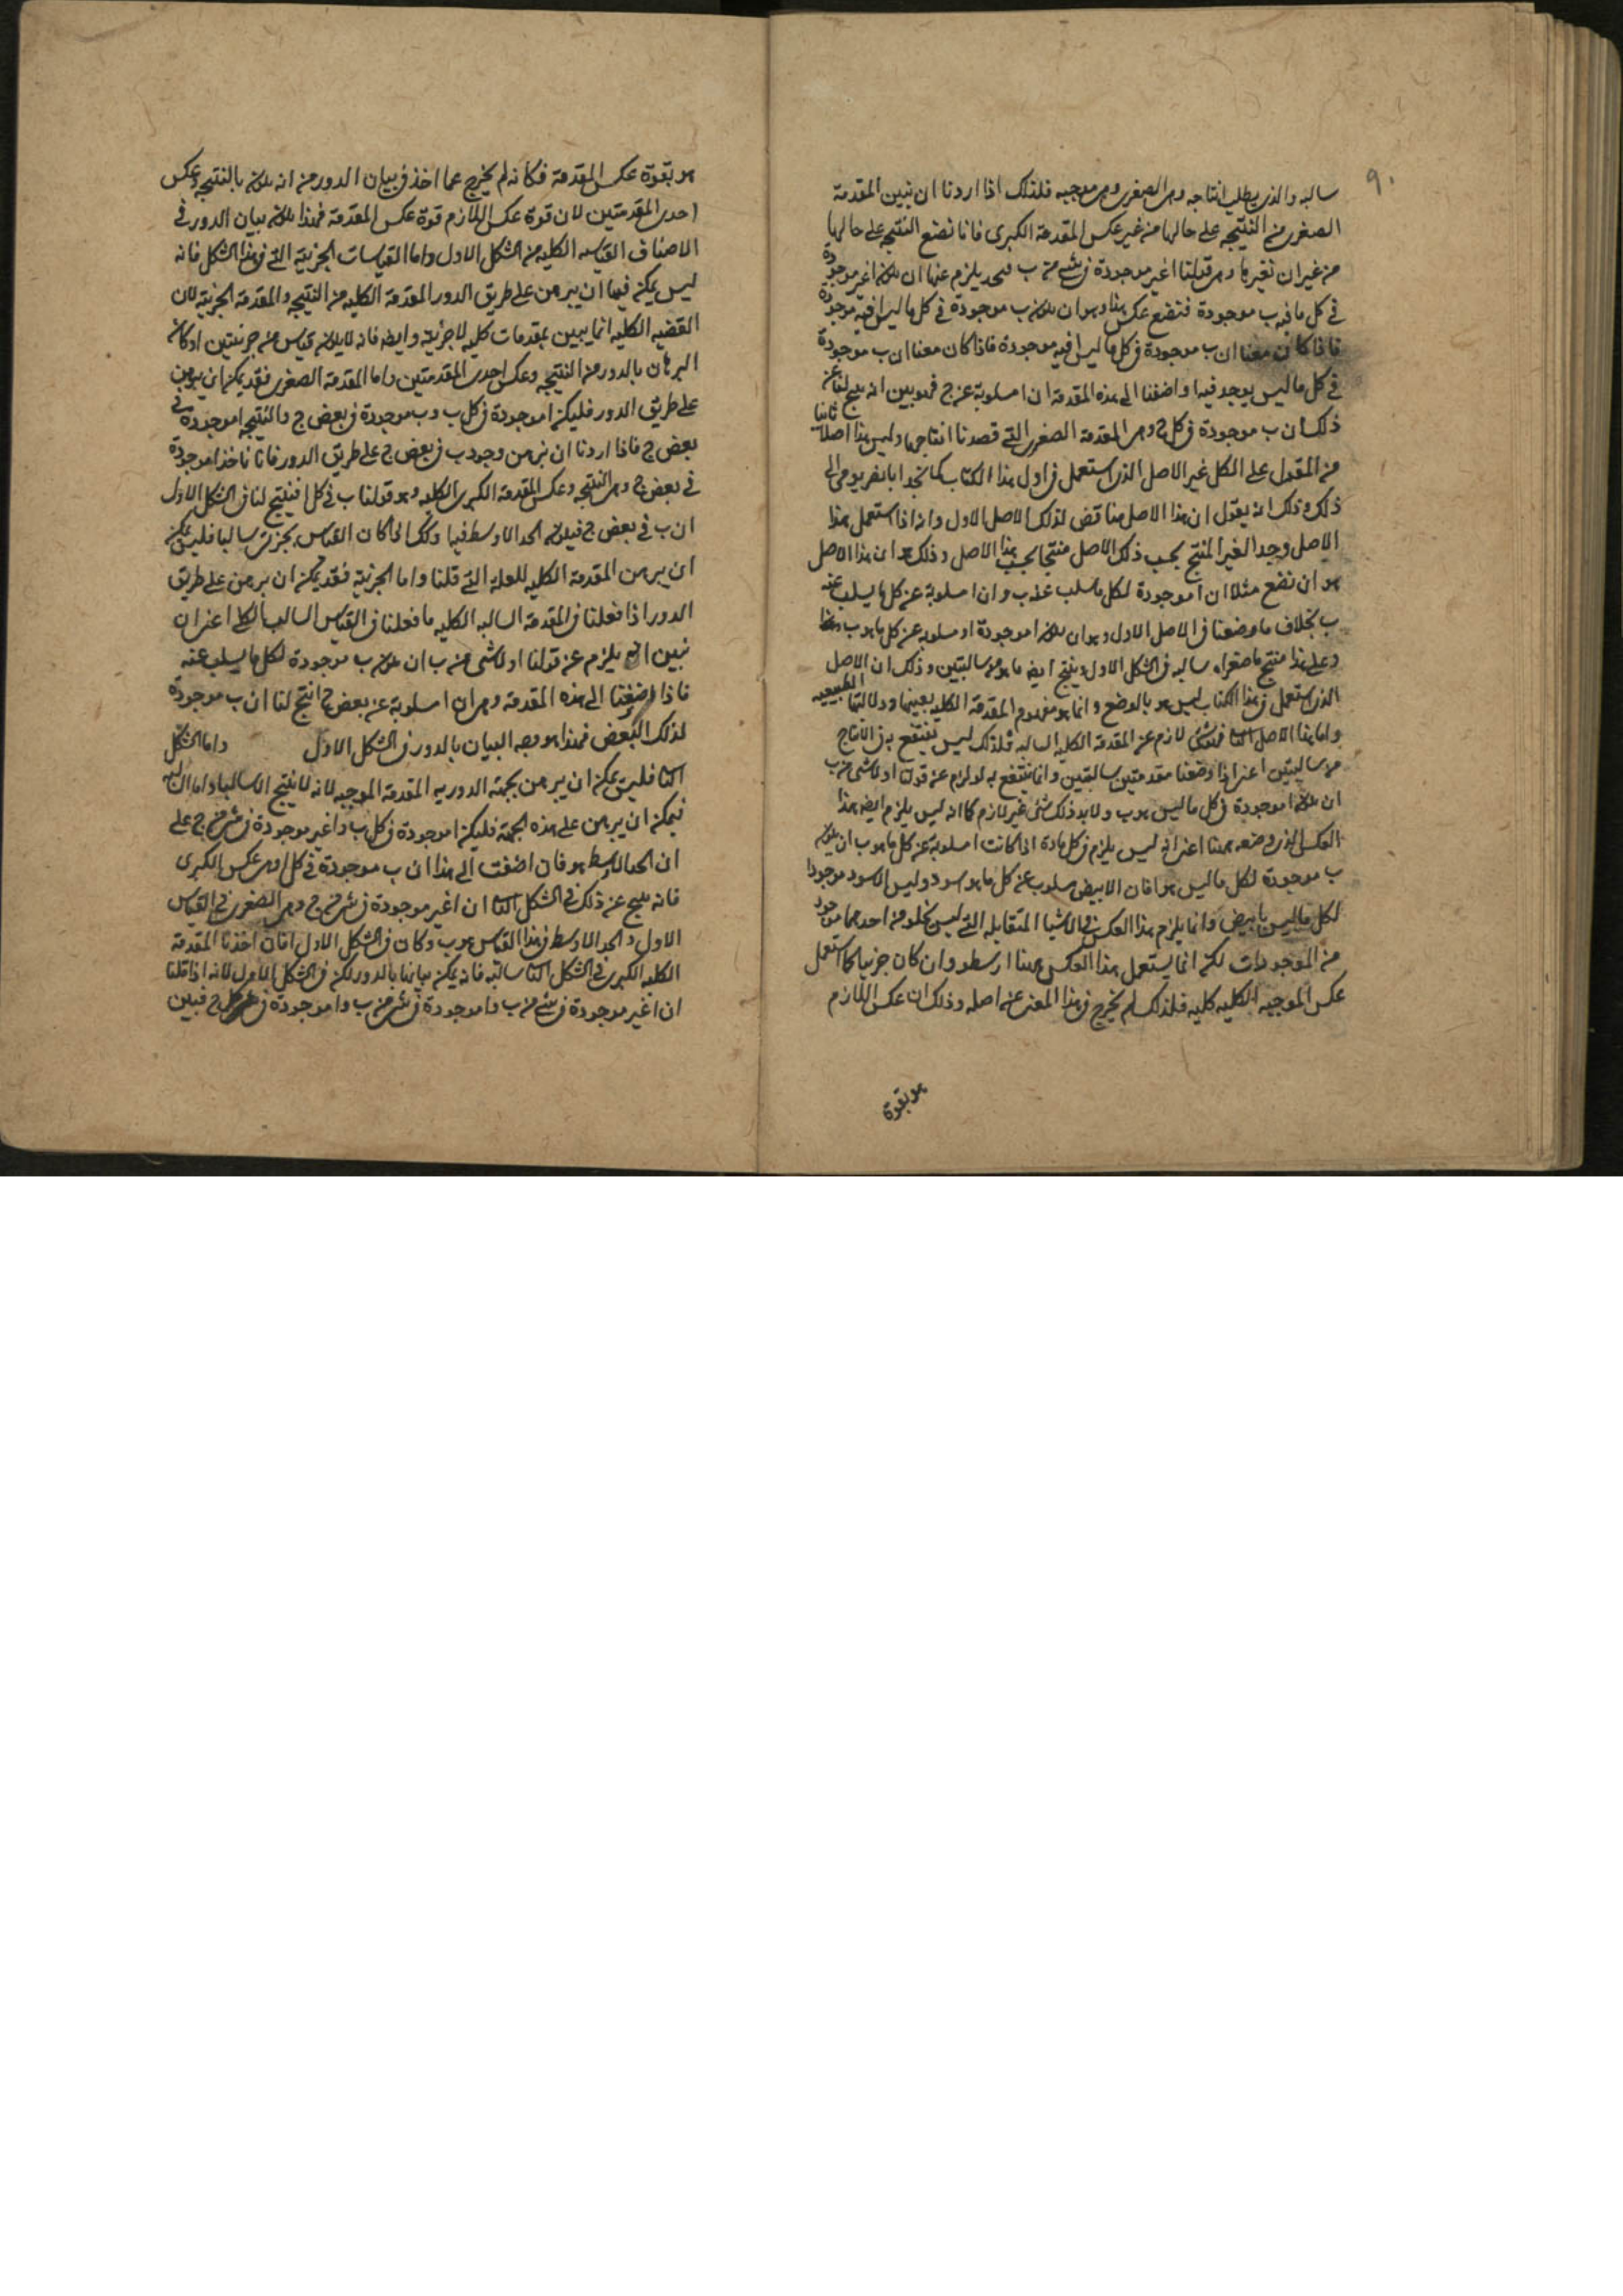 ٩٠
سالبه والذى يطلب انتاجه وهى الصغرى وهى موجبه فلذلك اذا اردنا ان نبين المقدمة
الصغرى من النتيجه على حالها من غير عكس المقدمة الكبرى فانا نضع النتيجه على حالها
من غير ان نغيرها وهى قولنا ا غير موجودة فى شى من ب يلزم عنها ان يكون ا غير موجودة
فى كل ما فيه ب موجودة فنضع عكس هذا وهو ان يكون ب موجودة فى كل ما ليس ا فيه موجودة
فاذا كان معنا ان ب موجودة فى كل ما ليس ا فيه موجودة فاذا كان معنا ان ب موجودة
فى كل ما ليس يوجد فيه ا واضفنا الى هذه المقدمة ان ا مسلوبة عن ج فهو بين انه ينتج لنا عن
ذلك ان ب موجودة فى كل ج وهى المقدمة الصغرى التى قصدنا انتاجها وليس هذا اصلا ثانيا
من المقول على الكل غير الاصل الذى استعمل فى اول هذا الكتاب كما نجد ابا نصر يومى الى
ذلك وذلك انه يقول ان هذا الاصل مناقض لذلك الاصل الاول وانه اذا استعمل هذا
الاصل وجد الغير المنتج بحسب ذلك الاصل منتجا بحسب هذا الاصل وذلك ان هذا الاصل
هو ان نضع مثلا ان ا موجودة لكل ما سلب عنه ب وان ا مسلوبة عن كل ما يسلب عنه
ب بخلاف ما وضعنا فى الاصل الاول وهو ان يكون ا موجودة او مسلوبه عن كل ما هو ب
وعلى هذا منتج ما صغراه سالبه فى الشكل الاول وينتج ايضا ما هو من سالبتين وذلك ان الاصل
الذى استعمل فى هذا الكتاب ليس هو بالوضع وانما هو مفهوم المقدمة الكليه بعينها ودلالتها الطبيعيه
واما هذا الاصل فهو شى لازم عن المقدمة الكليه السالبه فلذلك ليس ينتفع به فى الانتاج
من سالبتين اعنى اذا وضعنا مقدمتين سالبتين وانما ينتفع به لو لزم عن قولنا ا ولا شى من ب
ان يكون ا موجودة فى كل ما ليس هو ب ولا بد ذلك شى غير لازم كما انه ليس يلزم ايضا هذا
العكس الذى وضعه ههنا اعنى انه ليس يلزم فى كل مادة اذا كانت ا مسلوبة عن كل ما هو ب ان يكون
ب موجودة لكل ما ليس هو ا فان الابيض مسلوب عن كل ما هو اسود وليس الاسود موجودا
لكل ما ليس بابيض وانما يلزم هذا العكس فى الاشيا المتقابله التى ليس يخلو من احدهما موجود
من الموجودات لكن انما يستعمل هذا العكس ههنا ارسطو وان كان جزئيا كما استعمل
عكس الموجبه الكليه كليه فلذلك لم يخرج فى هذا المعنى عن اصله وذلك ان عكس اللازم
هو بقوة
هو بقوة عكس المقدمة فكانه لم يخرج عما اخذ فى بيان الدور من انه يكون بالنتيجه وعكس
احدى المقدمتين لان قوة عكس اللازم قوة عكس المقدمة فهذا يكون بيان الدور فى
الاصناف القياسيه الكليه من الشكل الاول واما القياسات الجزئية التى فى هذا الشكل فانه
ليس يمكن فيها ان يبرهن على طريق الدور المقدمة الكليه من النتيجه والمقدمة الجزئية لان
القضيه الكليه انما يبين بمقدمات كليه لا جزئية وايضا فانه لا يكون قياس من جزئيتين اذ كان
البرهان بالدور من النتيجه وعكس احدى المقدمتين واما المقدمة الصغرى فقد يمكن ان يبرهن
على طريق الدور فليكن ا موجودة فى كل ب وب موجودة فى بعض ج والنتيجه ا موجودة فى
بعض ج فاذا اردنا ان نبرهن وجود ب فى بعض ج على طريق الدور فانا ناخذ ا موجودة
فى بعض ج وهى النتيجه وعكس المقدمة الكبرى الكليه وهو قولنا ب فى كل ا فينتج لنا فى الشكل الاول
ان ب فى بعض ج فيكون الحد الاوسط فيها ا وكذلك ان كان القياس بجزئى سالبا فليس يمكن
ان يبرهن المقدمة الكليه للعلة التى قلنا واما الجزئية فقد يمكن ان يبرهن على طريق
الدور اذا فعلنا فى المقدمة السالبه الكليه ما فعلنا فى القياس السالب الكلى اعنى ان
نبين انه يلزم عن قولنا ا ولا شى من ب ان يكون ب موجودة لكل ما يسلب عنه
فاذا اضفنا الى هذه المقدمة وهى ان ا مسلوبة عن بعض ج انتج لنا ان ب موجودة
لذلك البعض فهذا هو وجه البيان بالدور فى الشكل الاول واما الشكل
الثانى فليس يمكن ان يبرهن بجهة الدوريه المقدمة الموجبه لانه لا ينتج الا سالبا واما السالبه
فيمكن ان يبرهن على هذه الجهة فليكن ا موجودة فى كل ب وا غير موجودة فى شى من ج على
ان الحد الاوسط هو فان اضفت الى هذا ان ب موجودة فى كل ا وهى عكس الكبرى
فانه ينتج عن ذلك فى الشكل الثانى ان ا غير موجودة فى شى من ج وهى الصغرى فى القياس
الاول والحد الاوسط فى هذا القياس هو ب وكان فى الشكل الاول ا فان اخذنا المقدمة
الكليه الكبرى فى الشكل الثانى سالبة فانه يمكن بيانها بالدور لكن فى الشكل الاول لانه اذا قلنا
ان ا غير موجودة فى شى من ب وا موجودة فى شى من ب وا موجودة فى كل ج فبين